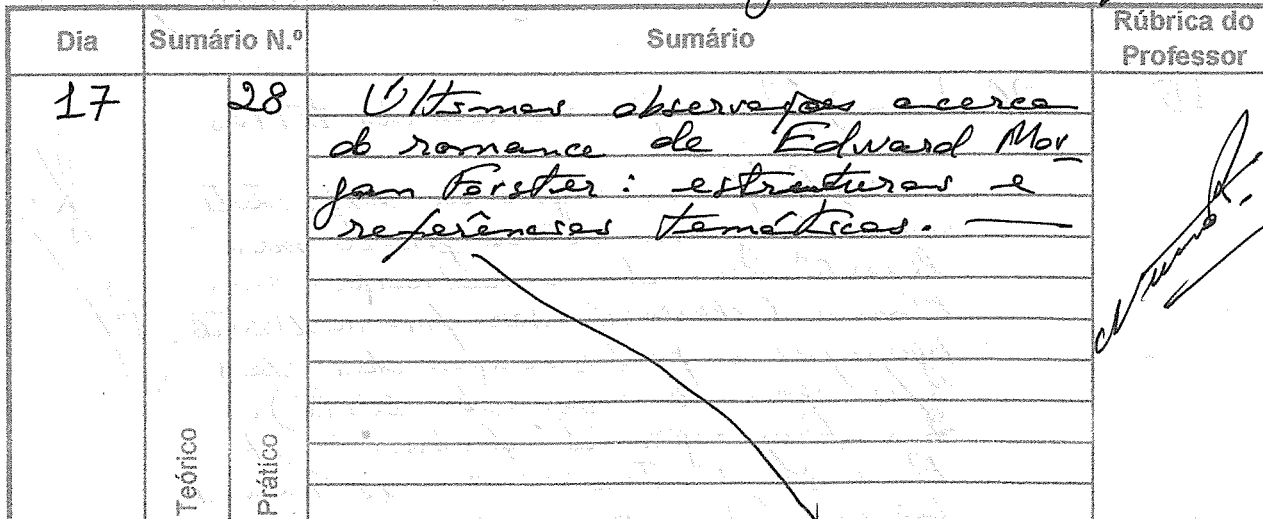 Dia Sumário N.º Sumário Rúbrica do Professor
17 28 Últimas observações acerca
do romance de Edward Mor
gan Forster: estruturas e
referências temáticas.
Teórico
Prático